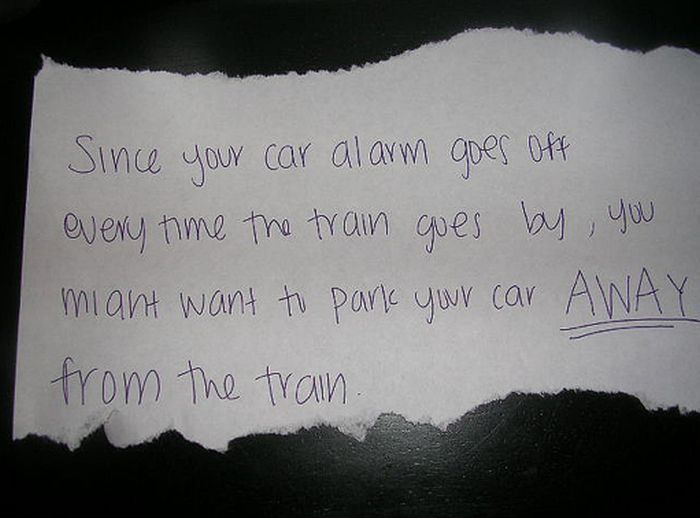 Since your car alarm goes off
every time the train goes by, you
miant want to park your car AWAY
from the train.